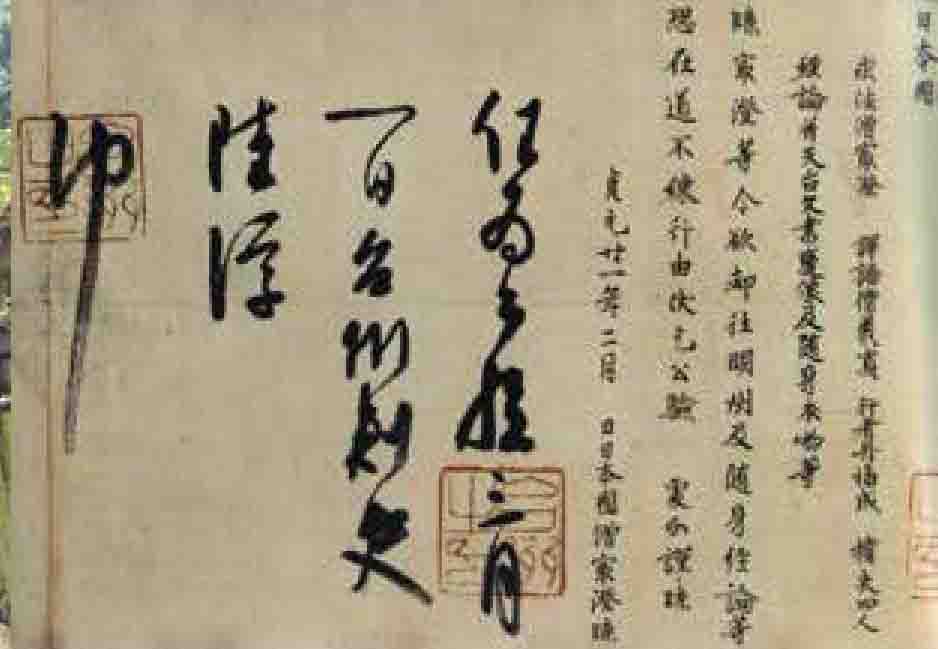 日本國
求法僧最澄 譯語僧義真 行者丹福成 擔夫四人
經論并天台文書變像及隨身衣物等
牒最澄等今欲却往明州及隨身經論等
恐在道不練行由伏乞公驗 處分謹牒
貞元廿一年二月 日日本國僧最澄牒
任為公驗三月
一日台州刺史
陸淳
印